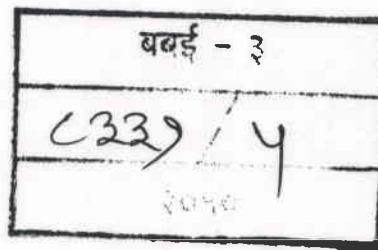 बबई - ३
८३३१ / ५
२०१०